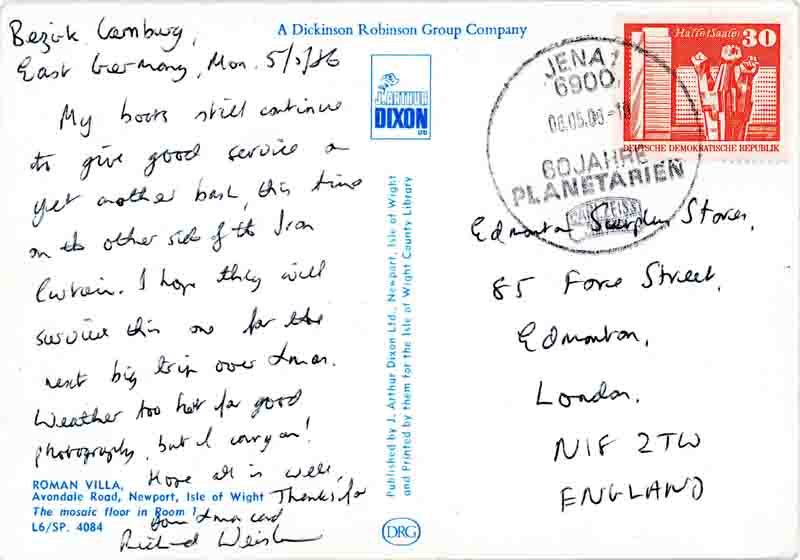 A Dickinson Robinson Group Company
Bezirk Camburg,
East Germany, Mon. 5/5/86
My boots still continue
to give good service on
yet another bash, this time
on the other side of the Iron
Curtain. I hope they will
survive this one for the
next big trip over Xmas.
Weather too hot for good
photography, but I carry on!
Hope all is well,
Thanks for
your Xmas card
Richard
ROMAN VILLA,
Avondale Road, Newport, Isle of Wight
The mosaic floor in Room 1
L6/SP. 4084
J. ARTHUR
DIXON
LTD
Published by J. Arthur Dixon Ltd., Newport, Isle of Wight
and Printed by them for the Isle of Wight County Library
DRG
JENA 1
6900
06.05.86-18
60 JAHRE
PLANETARIEN
CARL ZEISS
Halle (Saale) 30
DEUTSCHE DEMOKRATISCHE REPUBLIK
Edmonton Surplus Stores,
85 Fore Street,
Edmonton,
London.
N18 2TW
ENGLAND